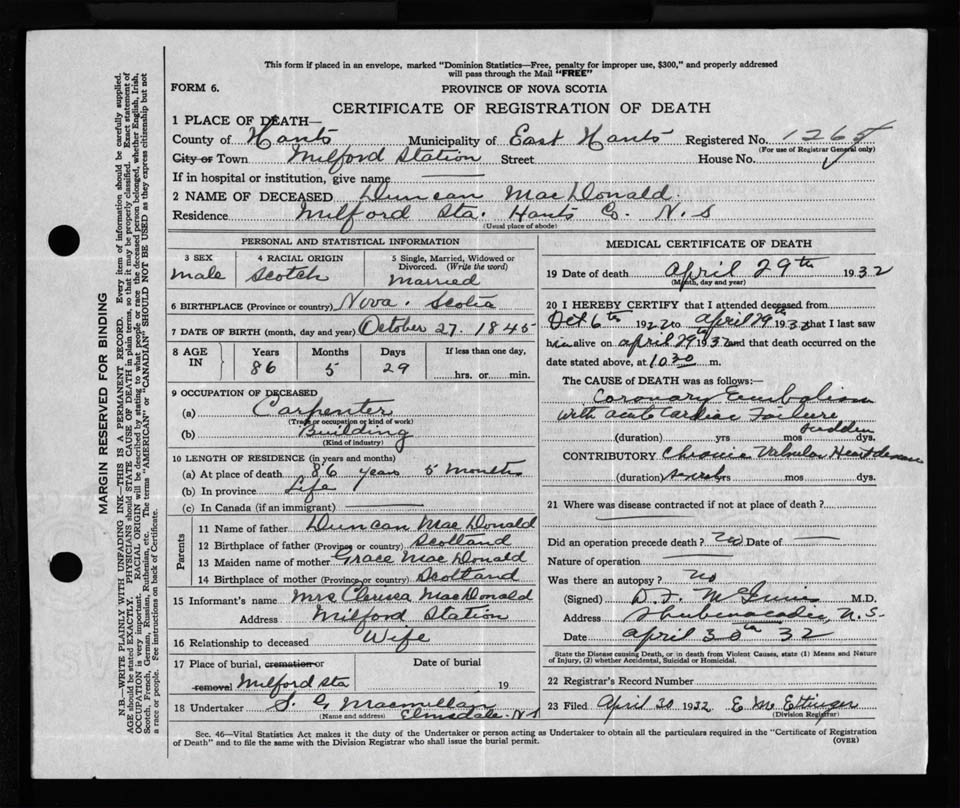 This form if placed in an envelope, marked "Dominion Statistics—Free, penalty for improper use, $300," and properly addressed
will pass through the Mail "FREE"
FORM 6.
PROVINCE OF NOVA SCOTIA
CERTIFICATE OF REGISTRATION OF DEATH
1 PLACE OF DEATH—
County of Hants Municipality of East Hants Registered No. 1265
(For use of Registrar General only)
City or Town Milford Station Street House No.
If in hospital or institution, give name
2 NAME OF DECEASED Duncan MacDonald
Residence Milford Sta. Hants Co. N.S
(Usual place of abode)
PERSONAL AND STATISTICAL INFORMATION
3 SEX
male
4 RACIAL ORIGIN
Scotch
5 Single, Married, Widowed or
Divorced. (Write the word)
Married
6 BIRTHPLACE (Province or country) Nova. Scotia
7 DATE OF BIRTH (month, day and year) October 27. 1845
8 AGE IN
Years Months Days If less than one day,
86 5 29 hrs. or min.
9 OCCUPATION OF DECEASED
(a) Carpenter
(Trade or occupation or kind of work)
(b) Building
(Kind of industry)
10 LENGTH OF RESIDENCE (in years and months)
(a) At place of death 86 years 5 months
(b) In province Life
(c) In Canada (if an immigrant)
Parents
11 Name of father Duncan MacDonald
12 Birthplace of father (Province or country) Scotland
13 Maiden name of mother Grace MacDonald
14 Birthplace of mother (Province or country) Scotland
15 Informant's name Mrs MacDonald
Address Milford Station
16 Relationship to deceased Wife
17 Place of burial, cremation or
removal Milford Sta
Date of burial
19
18 Undertaker S. G Macmillan
(Name and address) Elmsdale. N S
MEDICAL CERTIFICATE OF DEATH
19 Date of death April 29th 1932
(Month, day and year)
20 I HEREBY CERTIFY that I attended deceased from
Oct 6th 1922 to April 29th 1932 that I last saw
him alive on April 29th 1932 and that death occurred on the
date stated above, at 10 30 m.
The CAUSE of DEATH was as follows:—
Coronary Embolism
with acute Cardiac Failure
sudden
(duration) yrs mos dys.
CONTRIBUTORY Chronic Valvular Heart disease
(duration) yrs mos dys.
21 Where was disease contracted if not at place of death?
Did an operation precede death? No Date of
Nature of operation
Was there an autopsy? No
(Signed) M.D.
Address Shubenacadie, N.S.
Date April 30th 32
State the Disease causing Death, or in death from Violent Causes, state (1) Means and Nature
of Injury, (2) whether Accidental, Suicidal or Homicidal.
22 Registrar's Record Number
23 Filed April 30 1932 E M Ettinger
(Division Registrar)
Sec. 46—Vital Statistics Act makes it the duty of the Undertaker or person acting as Undertaker to obtain all the particulars required in the "Certificate of Registration
of Death" and to file the same with the Division Registrar who shall issue the burial permit.
(OVER)
MARGIN RESERVED FOR BINDING
N.B.—WRITE PLAINLY WITH UNFADING INK—THIS IS A PERMANENT RECORD. Every item of information should be carefully supplied.
AGE should be stated EXACTLY. PHYSICIANS should STATE CAUSE OF DEATH in plain terms, so that it may be properly classified. Exact statement of
OCCUPATION is very important. RACIAL ORIGIN will be described by stating to what people or race the deceased person belonged, whether English, Irish,
Scotch, French, German, Russian, Ruthenian, etc. The terms "AMERICAN" or "CANADIAN" SHOULD NOT BE USED as they express citizenship but not
a race or people. Fee instructions on back of Certificate.